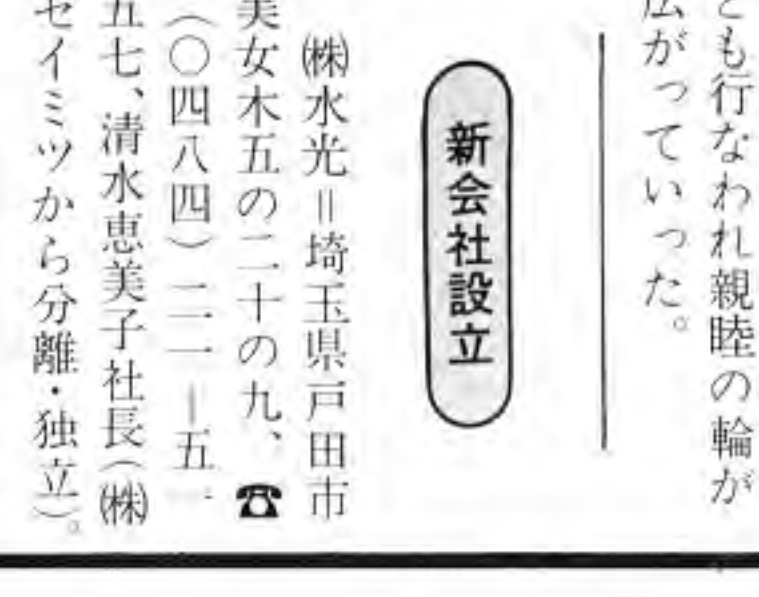 とも行なわれ親睦の輪が
広がっていった。
新会社設立
㈱水光＝埼玉県戸田市
美女木五の二十の九、☎
（〇四八四）
五七、清水恵美子社長（㈱
セイミツから分離・独立）。